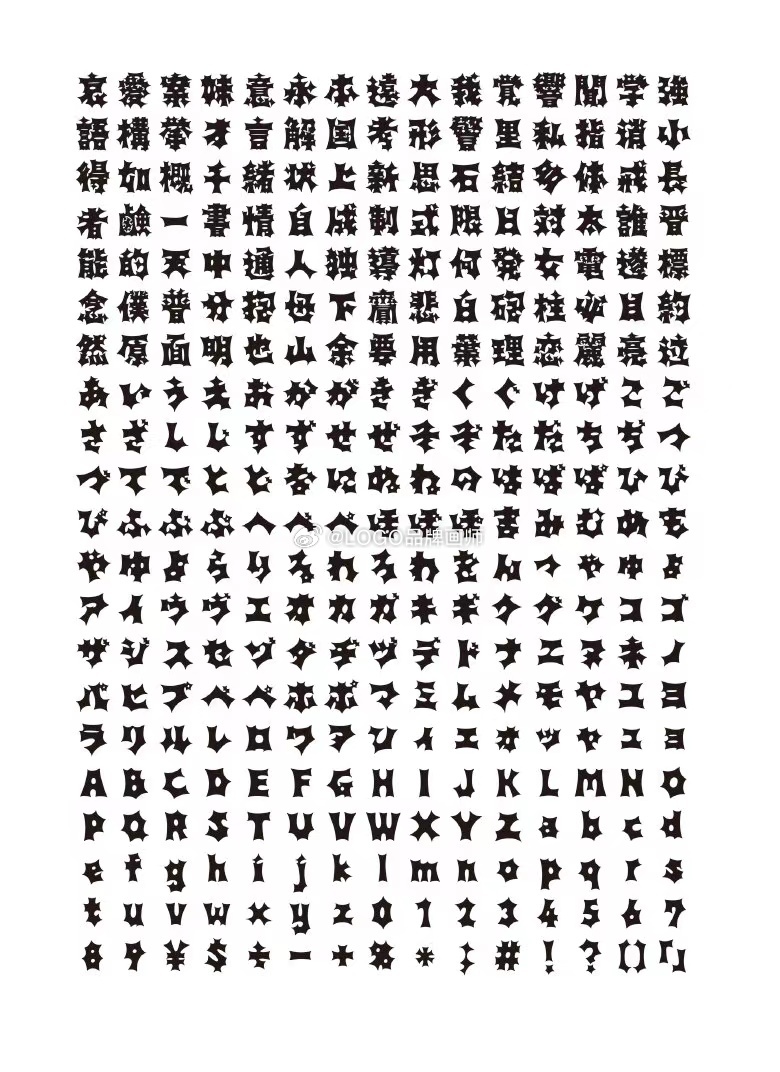 哀愛案妹意永本遠大我覚響聞学強
語構挙才言解国考形警里私指消小
得如概千緒状上新思石結多体戒長
者鹸一書情自成制式限日対太誰晋
能的天中通人独導灯何発女電遂標
念僕普分抱下悲白砲柱必目約
然原面明也山余要用葉理恋麗亮
あいうえおかがきぎくぐけげこご
さざしじすずせぜそぞただちぢつ
づてでとどなにぬねのはばぱひび
ぴふぶぷへべぺほぼぽまみむめも
やゆよらりるれろわをんっゃゅょ
アイウヴエオカガキギクグケコゴ
ザジスセゾダヂヅデドナニヌネノ
パヒプベペホポマミムメモヤユヨ
ラリルレロワヲンィェォッャュョ
ABCDEFGHIJKLMNO
PQRSTUVWXYZabcd
efghijklmnopqrs
tuvwxyz01234567
89¥$÷−+%*:#!?()「」
@LOGO品牌画师